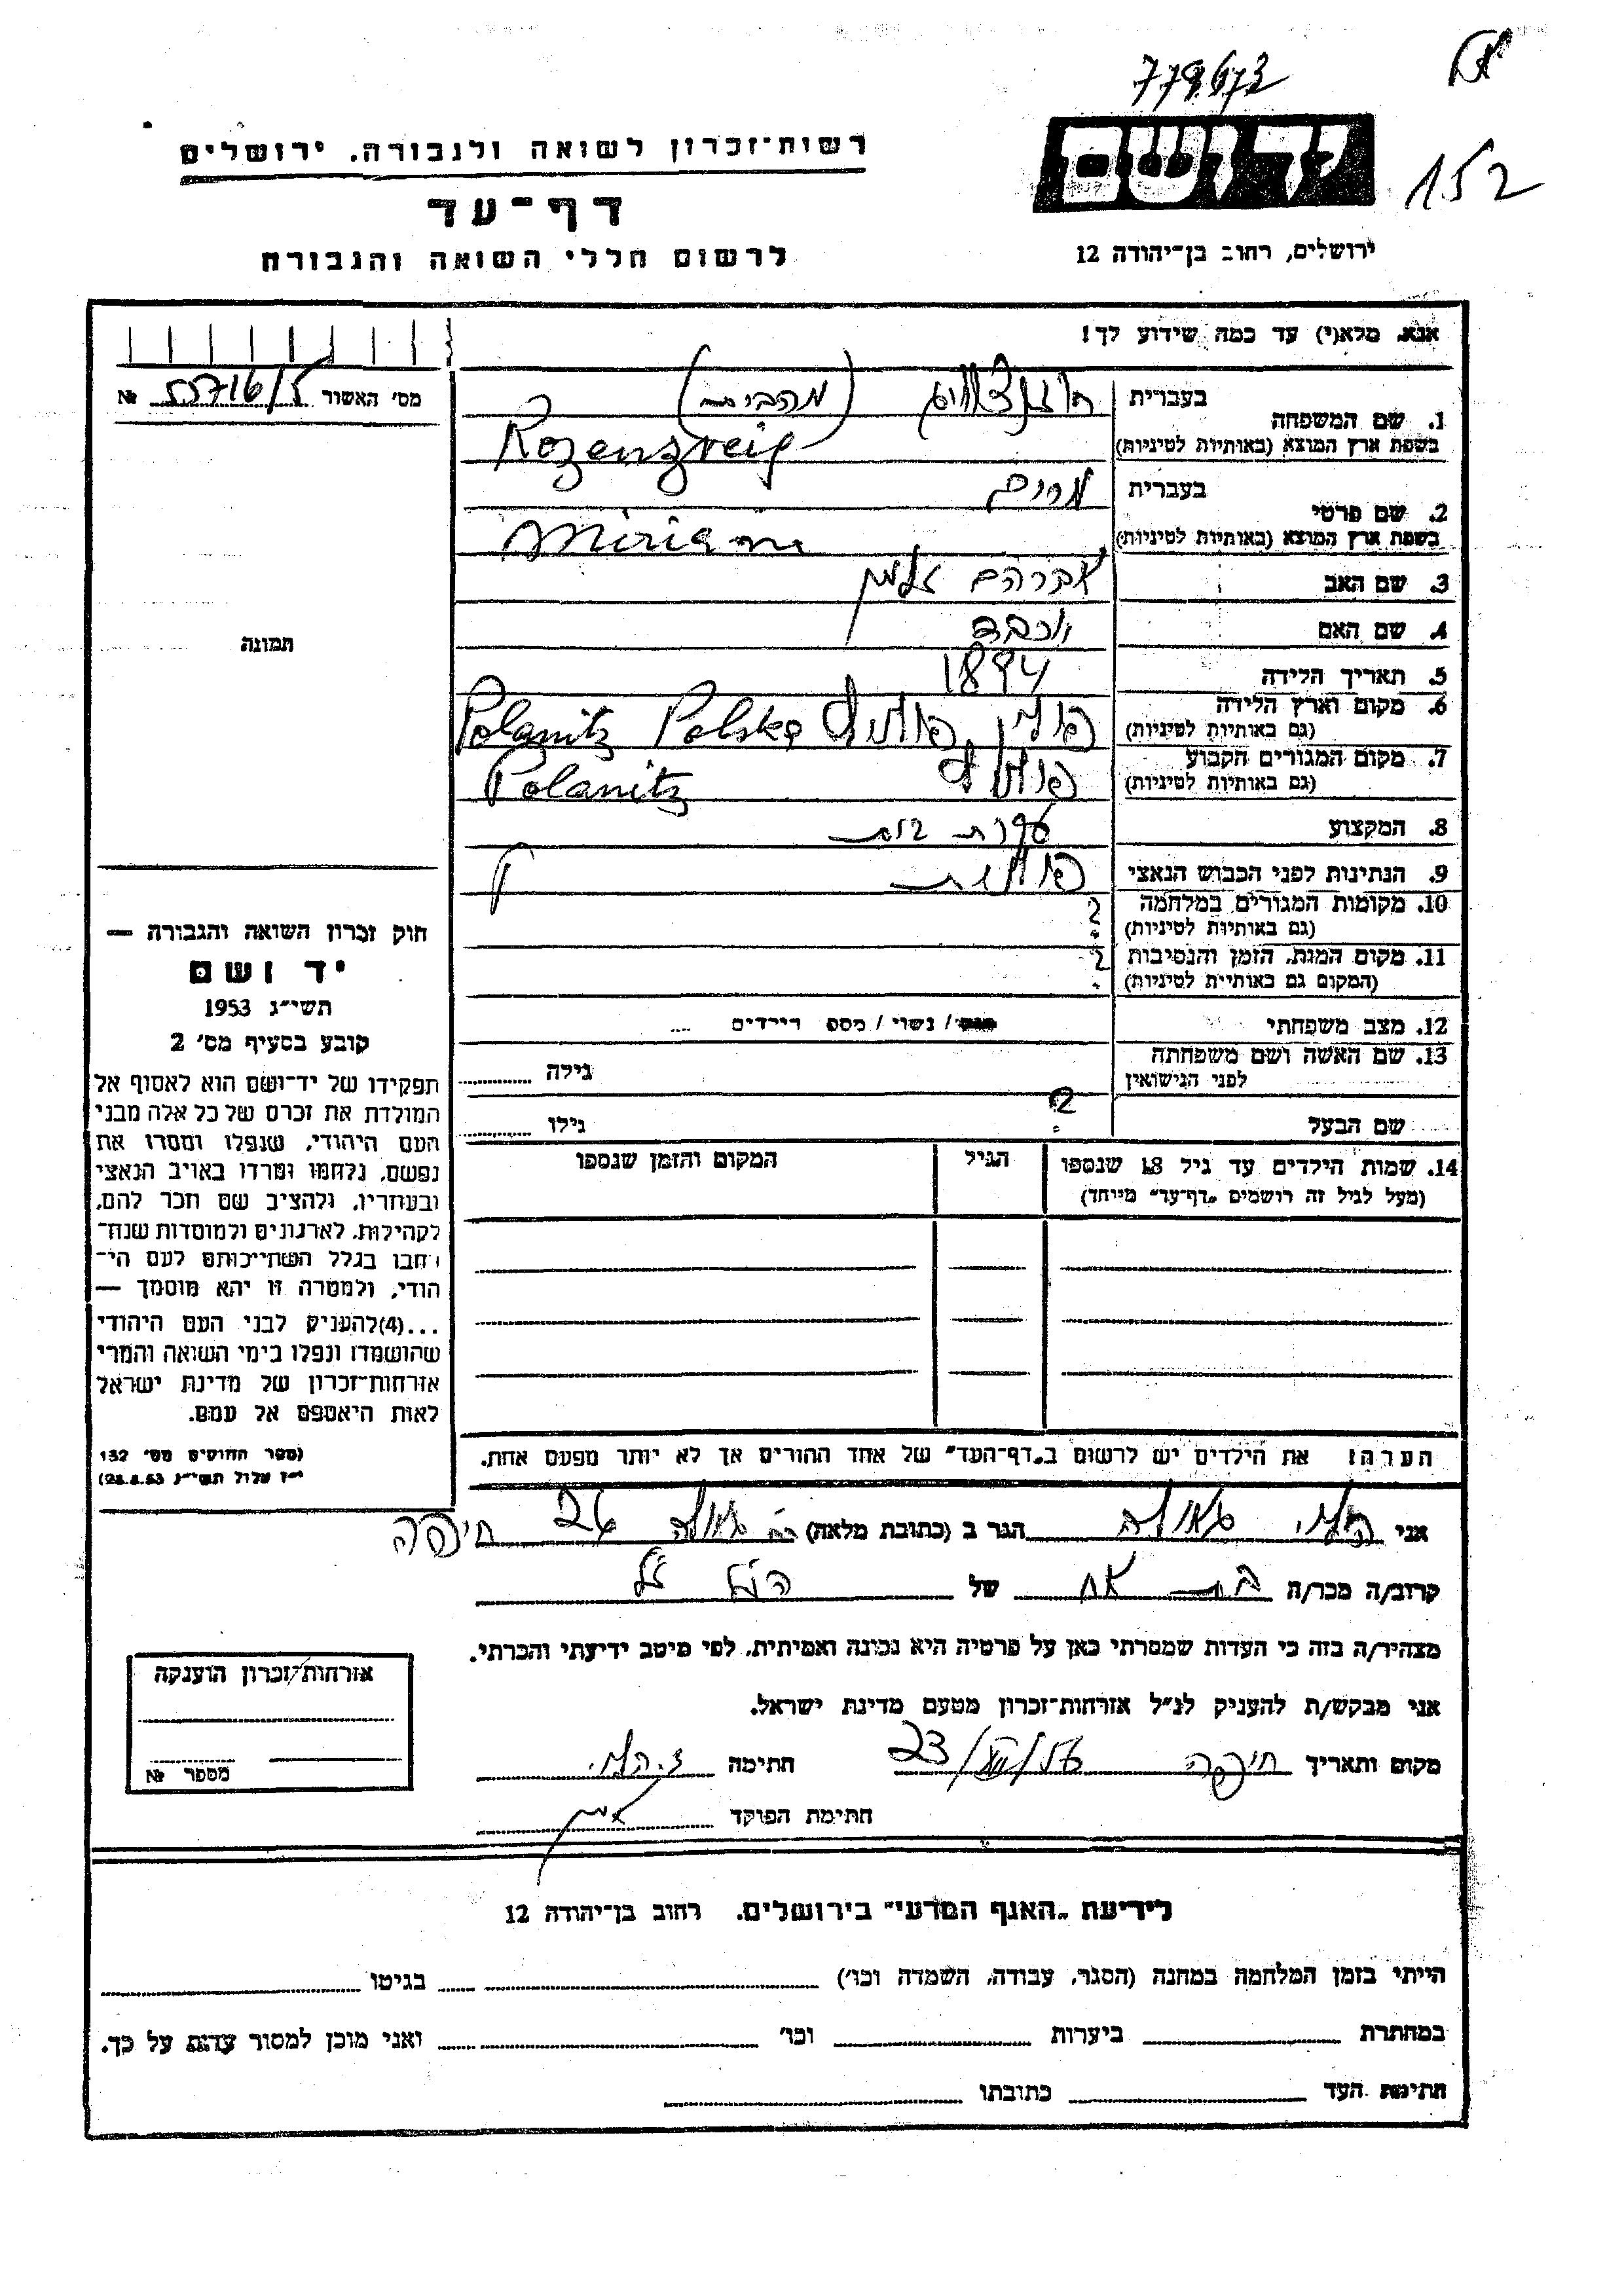 779673
152
יד ושם
ירושלים, רחוב בן־יהודה 12
רשות־זכרון לשואה ולגבורה. ירושלים
דף־עד
לרשום חללי השואה והגבורה
אנא. מלא(י) עד כמה שידוע לך!
מס' האשור 55716/5 №
תמונה
1. שם המשפחה
בעברית רוזנצווייג (מהבית)
בשפת ארץ המוצא (באותיות לטיניות) Rozenzveig
2. שם פרטי
בעברית מרים
בשפת ארץ המוצא (באותיות לטיניות) Miriam
3. שם האב אברהם זלמן
4. שם האם יוכבד
5. תאריך הלידה 1894
6. מקום וארץ הלידה פולין, Polanitz Polska
(גם באותיות לטיניות)
7. מקום המגורים הקבוע Polanitz
(גם באותיות לטיניות)
8. המקצוע עקרת בית
9. הנתינות לפני הכבוש הנאצי פולנית
10. מקומות המגורים במלחמה ?
(גם באותיות לטיניות)
11. מקום המות. הזמן והנסיבות ?
(המקום גם באותיות לטיניות)
12. מצב משפחתי / נשוי / מספ הילדים ....
13. שם האשה ושם משפחתה
לפני הנישואין גילה
שם הבעל ? גילו
14. שמות הילדים עד גיל 18 שנספו הגיל המקום והזמן שנספו
(מעל לגיל זה רושמים „דף־עד” מיוחד)
הערה! את הילדים יש לרשום ב„דף־העד” של אחד ההורים אך לא יותר מפעם אחת.
חוק זכרון השואה והגבורה —
יד ושם
תשי״ג 1953
קובע בסעיף מס' 2
תפקידו של יד־ושם הוא לאסוף אל
המולדת את זכרם של כל אלה מבני
העם היהודי, שנפלו ומסרו את
נפשם, נלחמו ומרדו באויב הנאצי
ובעוזריו, ולהציב שם וזכר להם,
לקהילות, לארגונים ולמוסדות שנח־
רבו בגלל השתייכותם לעם הי־
הודי, ולמטרה זו יהא מוסמך —
...(4)להעניק לבני העם היהודי
שהושמדו ונפלו בימי השואה והמרי
אזרחות־זכרון של מדינת ישראל
לאות היאספם אל עמם.
(ספר החוקים מס' 132
י״ז אלול תשי״ג 28.8.53)
אני גאולה הגר ב (כתובת מלאה) רח גאולה 26 חיפה
קרוב/ה מכר/ה בת אח של הנ״ל ז״ל
מצהיר/ה בזה כי העדות שמסרתי כאן על פרטיה היא נכונה ואמיתית, לפי מיטב ידיעתי והכרתי.
אני מבקש/ת להעניק לנ״ל אזרחות־זכרון מטעם מדינת ישראל.
מקום ותאריך חיפה 23/VII/56 חתימה
חתימת הפוקד
אזרחות־זכרון הוענקה
מספר №
לידיעת „האגף המדעי” בירושלים. רחוב בן־יהודה 12
הייתי בזמן המלחמה במחנה (הסגר, עבודה, השמדה וכו') בגיטו
במחתרת ביערות וכו' ואני מוכן למסור עדות על כך.
חתימת העד כתובתו